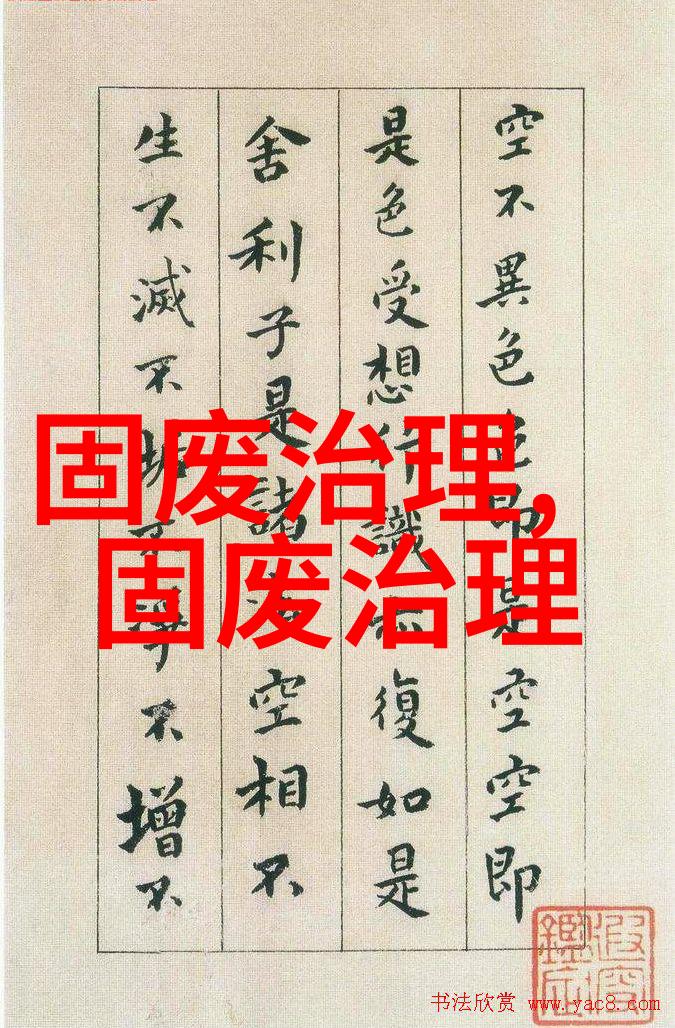 空不異色色即是空空即
是色受想行識亦復如是
舍利子是諸法空相不
生不滅不垢不淨不增不
固废治理,
固废治理
书法欣赏 www.yac8.com